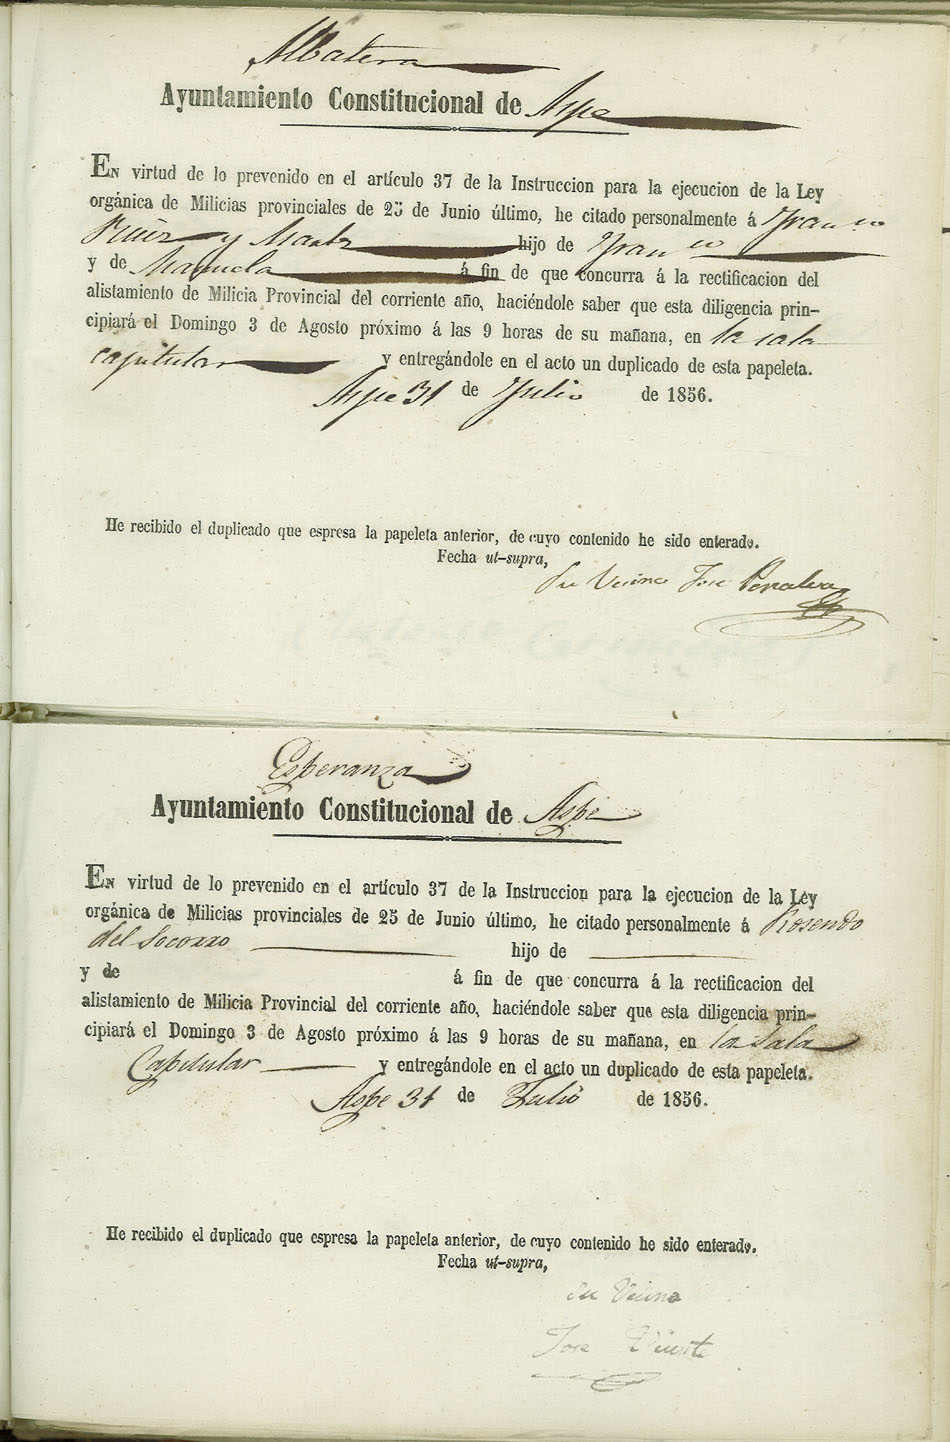 Albatera
Ayuntamiento Constitucional de Aspe
En virtud de lo prevenido en el artículo 37 de la Instruccion para la ejecucion de la Ley
orgánica de Milicias provinciales de 25 de Junio último, he citado personalmente á Franco
Ruiz y hijo de Franco
y de Manuela á fin de que concurra á la rectificacion del
alistamiento de Milicia Provincial del corriente año, haciéndole saber que esta diligencia prin-
cipiará el Domingo 3 de Agosto próximo á las 9 horas de su mañana, en la sala
capitular y entregándole en el acto un duplicado de esta papeleta.
Aspe 31 de Julio de 1856.
He recibido el duplicado que espresa la papeleta anterior, de cuyo contenido he sido enterado.
Fecha ut-supra,
Su Vecino Jose
Esperanza
Ayuntamiento Constitucional de Aspe
En virtud de lo prevenido en el artículo 37 de la Instruccion para la ejecucion de la Ley
orgánica de Milicias provinciales de 25 de Junio último, he citado personalmente á Rosendo
del Socorro hijo de
y de á fin de que concurra á la rectificacion del
alistamiento de Milicia Provincial del corriente año, haciéndole saber que esta diligencia prin-
cipiará el Domingo 3 de Agosto próximo á las 9 horas de su mañana, en la Sala
Capitular y entregándole en el acto un duplicado de esta papeleta.
Aspe 31 de Julio de 1856.
He recibido el duplicado que espresa la papeleta anterior, de cuyo contenido he sido enterado.
Fecha ut-supra,
Su Vecino
Jose